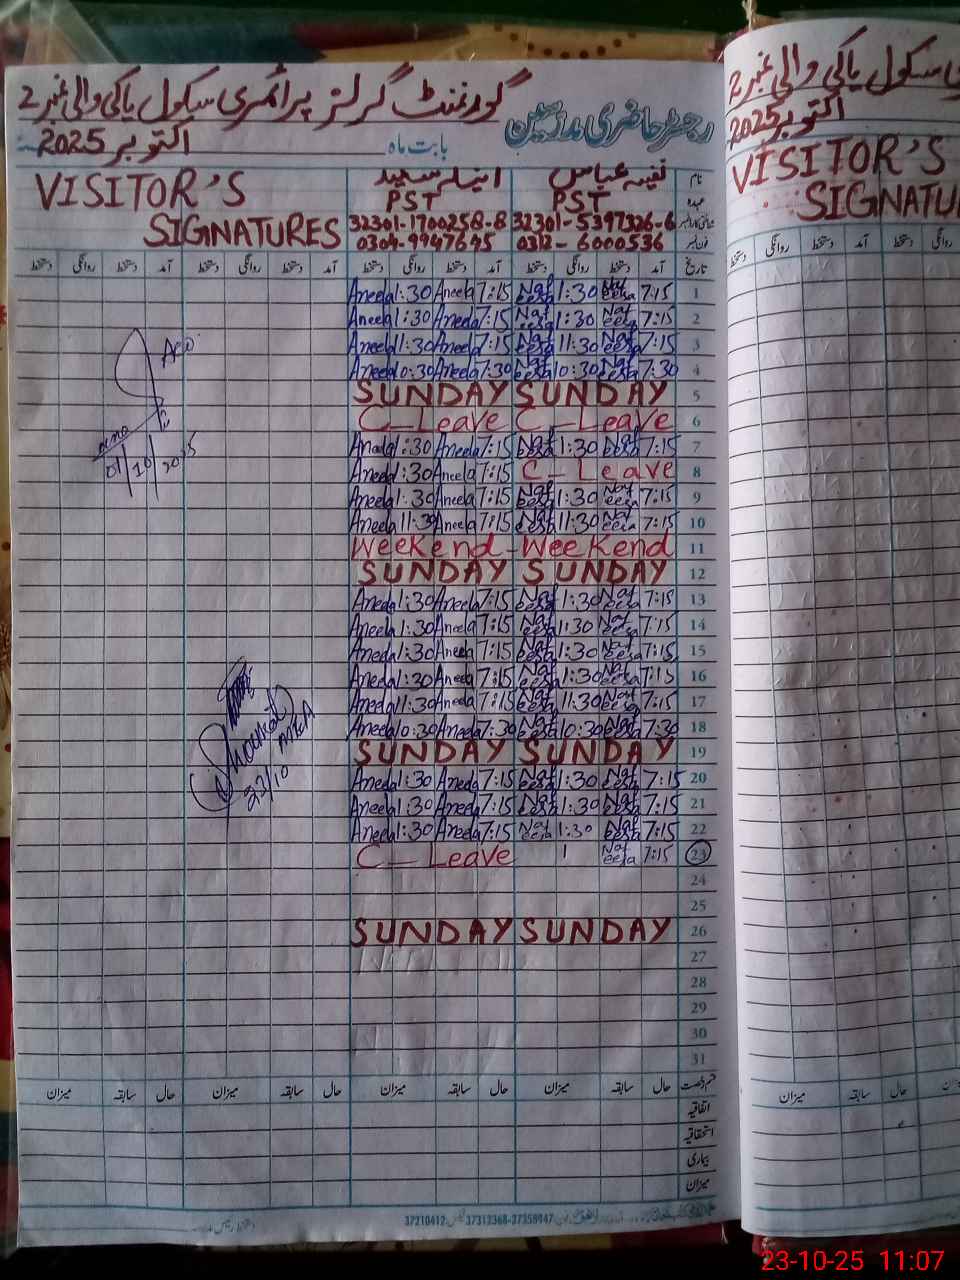 گورنمنٹ گرلز پرائمری سکول یاکی والی نمبر 2
رجسٹر حاضری مدرسین
بابت ماہ اکتوبر 2025
VISITOR'S SIGNATURES
نام نفیسہ عباس انیلہ سعید
عہدہ PST PST
شناختی کارڈ نمبر 32301-5397326-6 32301-1700258-8
فون نمبر 0312-6000536 0304-9947645
تاریخ آمد دستخط روانگی دستخط آمد دستخط روانگی دستخط آمد دستخط روانگی دستخط آمد دستخط روانگی دستخط
1 7:15 Nafeesa 1:30 Nafeesa 7:15 Aneela 1:30 Aneela
2 7:15 Nafeesa 1:30 Nafeesa 7:15 Aneela 1:30 Aneela
3 7:15 Nafeesa 11:30 Nafeesa 7:15 Aneela 11:30 Aneela
4 7:30 Nafeesa 10:30 Nafeesa 7:30 Aneela 10:30 Aneela
5 SUNDAY SUNDAY
6 C-Leave C-Leave
7 7:15 Nafeesa 1:30 Nafeesa 7:15 Aneela 1:30 Aneela
8 C-Leave 7:15 Aneela 1:30 Aneela
9 7:15 Nafeesa 1:30 Nafeesa 7:15 Aneela 1:30 Aneela
10 7:15 Nafeesa 11:30 Nafeesa 7:15 Aneela 11:30 Aneela
11 Weekend-Weekend
12 SUNDAY SUNDAY
13 7:15 Nafeesa 1:30 Nafeesa 7:15 Aneela 1:30 Aneela
14 7:15 Nafeesa 1:30 Nafeesa 7:15 Aneela 1:30 Aneela
15 7:15 Nafeesa 1:30 Nafeesa 7:15 Aneela 1:30 Aneela
16 7:15 Nafeesa 1:30 Nafeesa 7:15 Aneela 1:30 Aneela
17 7:15 Nafeesa 11:30 Nafeesa 7:15 Aneela 11:30 Aneela
18 7:30 Nafeesa 10:30 Nafeesa 7:30 Aneela 10:30 Aneela
19 SUNDAY SUNDAY
20 7:15 Nafeesa 1:30 Nafeesa 7:15 Aneela 1:30 Aneela
21 7:15 Nafeesa 1:30 Nafeesa 7:15 Aneela 1:30 Aneela
22 7:15 Nafeesa 1:30 Nafeesa 7:15 Aneela 1:30 Aneela
23 7:15 Nafeesa C-Leave
24
25
26 SUNDAY SUNDAY
27
28
29
30
31
01/10/2025
23/10
MEA
قسم رخصت حال سابقہ میزان حال سابقہ میزان حال سابقہ میزان حال سابقہ میزان
اتفاقیہ
استحقاقیہ
بیماری
میزان
37210412 37313368-37358947
اکتوبر 2025
VISITOR'S
روانگی دستخط آمد دستخط روانگی دستخط
حال سابقہ میزان
23-10-25 11:07